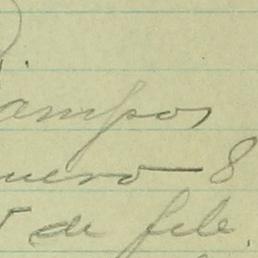 ampos
uero - 8
5 de feb.